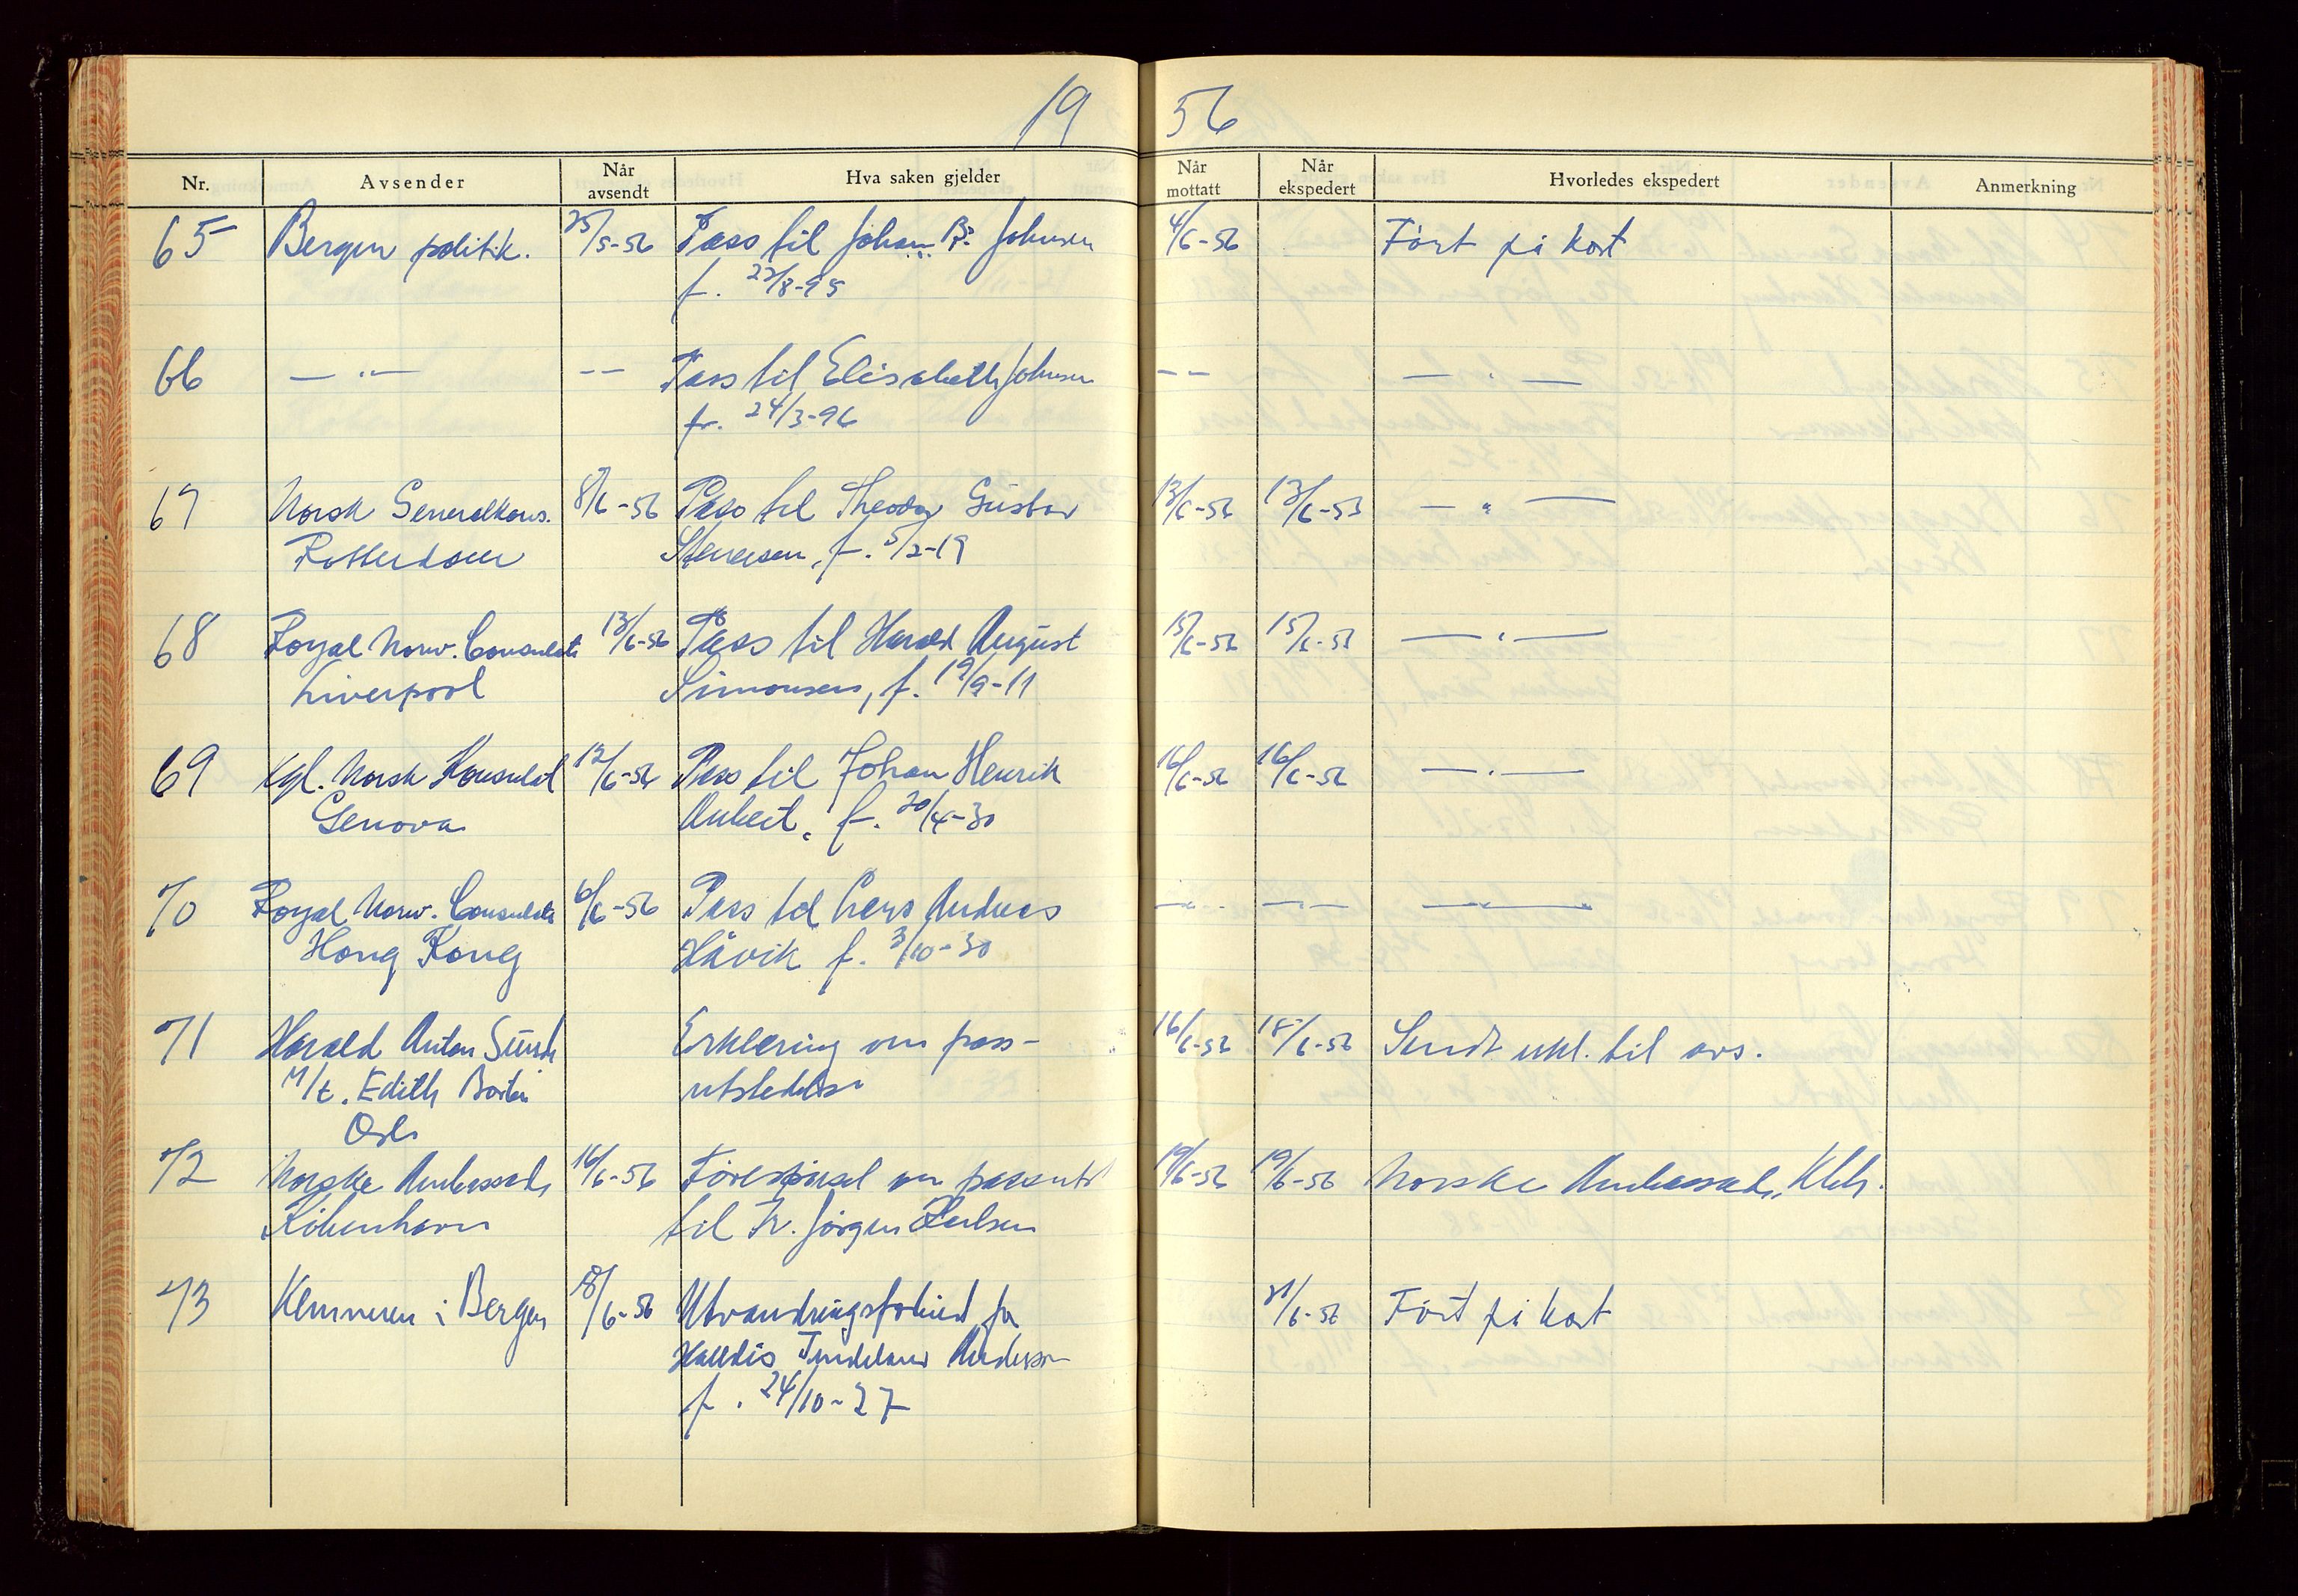 19 56
Nr. Avsender Når avsendt Hva saken gjelder Når mottatt Når ekspedert Hvorledes ekspedert Anmerkning
65 Bergen politik. 25/5-56 Pass til Johan B. Johnsen 4/6-56 Ført på kort
f. 23/8-95
66 — " — -- Pass til Elisabeth Johnsen -- — " —
f. 24/3-96
67 Norsk Generalkons. 8/6-56 Pass til Theodor Gustav 13/6-56 13/6-53 — " —
Rotterdam Stenersen, f. 5/2-19
68 Royal Norw. Consulate 13/6-56 Pass til Harald August 15/6-56 15/6-53 — " —
Liverpool Simonsen, f. 19/9-11
69 Kgl. Norsk Konsulat 12/6-56 Pass til Johan Henrik 16/6-56 16/6-56 — " —
Genova Aubert, f. 20/4-30
70 Royal Norw. Consulate 6/6-56 Pass til Lars Andreas — " — — " — — " —
Hong Kong Håvik f. 3/10-30
71 Harald Anton Sund 16/6-56 18/6-56 Sendt til avs.
Erklæring om pass-
M/t. Edith utstedelse
Oslo
72 Norske Ambassade 16/6-56 Førespørsel om passutst 19/6-56 19/6-56 Norske Ambassade, Kbh.
København til Fr. Jørgen
73 Kemneren i Bergen 18/6-56 Utvandringsforbud for 21/6-56 Ført på kort
Halldis Anderson
f. 24/10-27